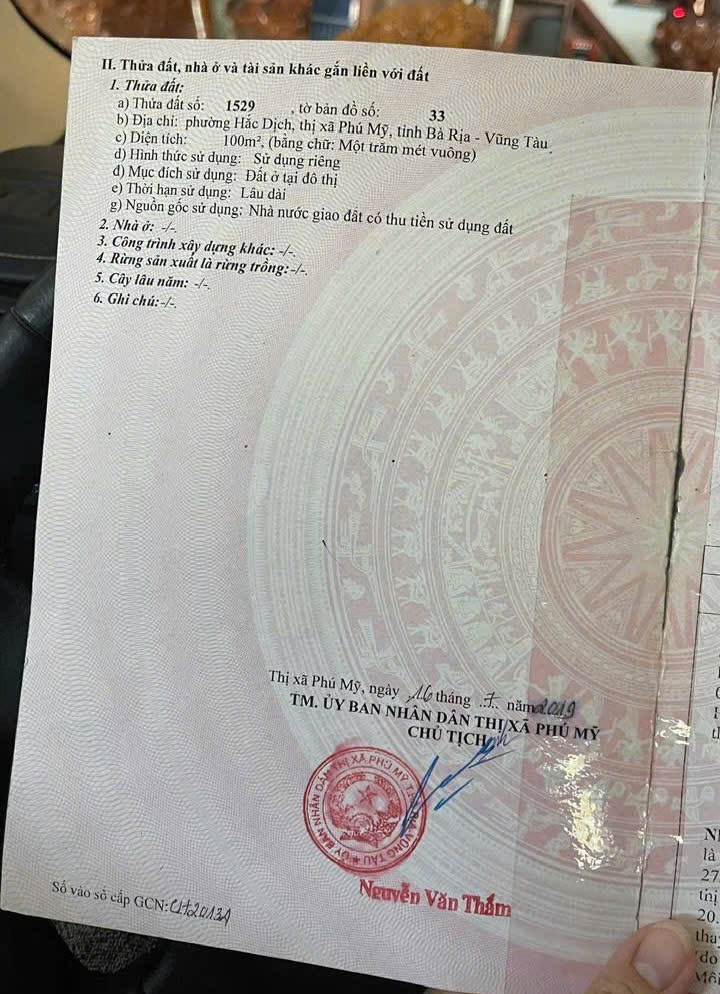 II. Thửa đất, nhà ở và tài sản khác gắn liền với đất
1. Thửa đất:
a) Thửa đất số: 1529 , tờ bản đồ số: 33
b) Địa chỉ: phường Hắc Dịch, thị xã Phú Mỹ, tỉnh Bà Rịa - Vũng Tàu
c) Diện tích: 100m², (bằng chữ: Một trăm mét vuông)
d) Hình thức sử dụng: Sử dụng riêng
đ) Mục đích sử dụng: Đất ở tại đô thị
e) Thời hạn sử dụng: Lâu dài
g) Nguồn gốc sử dụng: Nhà nước giao đất có thu tiền sử dụng đất
2. Nhà ở: -/-.
3. Công trình xây dựng khác: -/-.
4. Rừng sản xuất là rừng trồng: -/-.
5. Cây lâu năm: -/-.
6. Ghi chú: -/-.
Thị xã Phú Mỹ, ngày 16 tháng 7 năm 2019
TM. ỦY BAN NHÂN DÂN THỊ XÃ PHÚ MỸ
CHỦ TỊCH
ỦY BAN NHÂN DÂN THỊ XÃ PHÚ MỸ T. BÀ RỊA VŨNG TÀU
Nguyễn Văn Thắm
Số vào sổ cấp GCN:
là
27
thị
20.